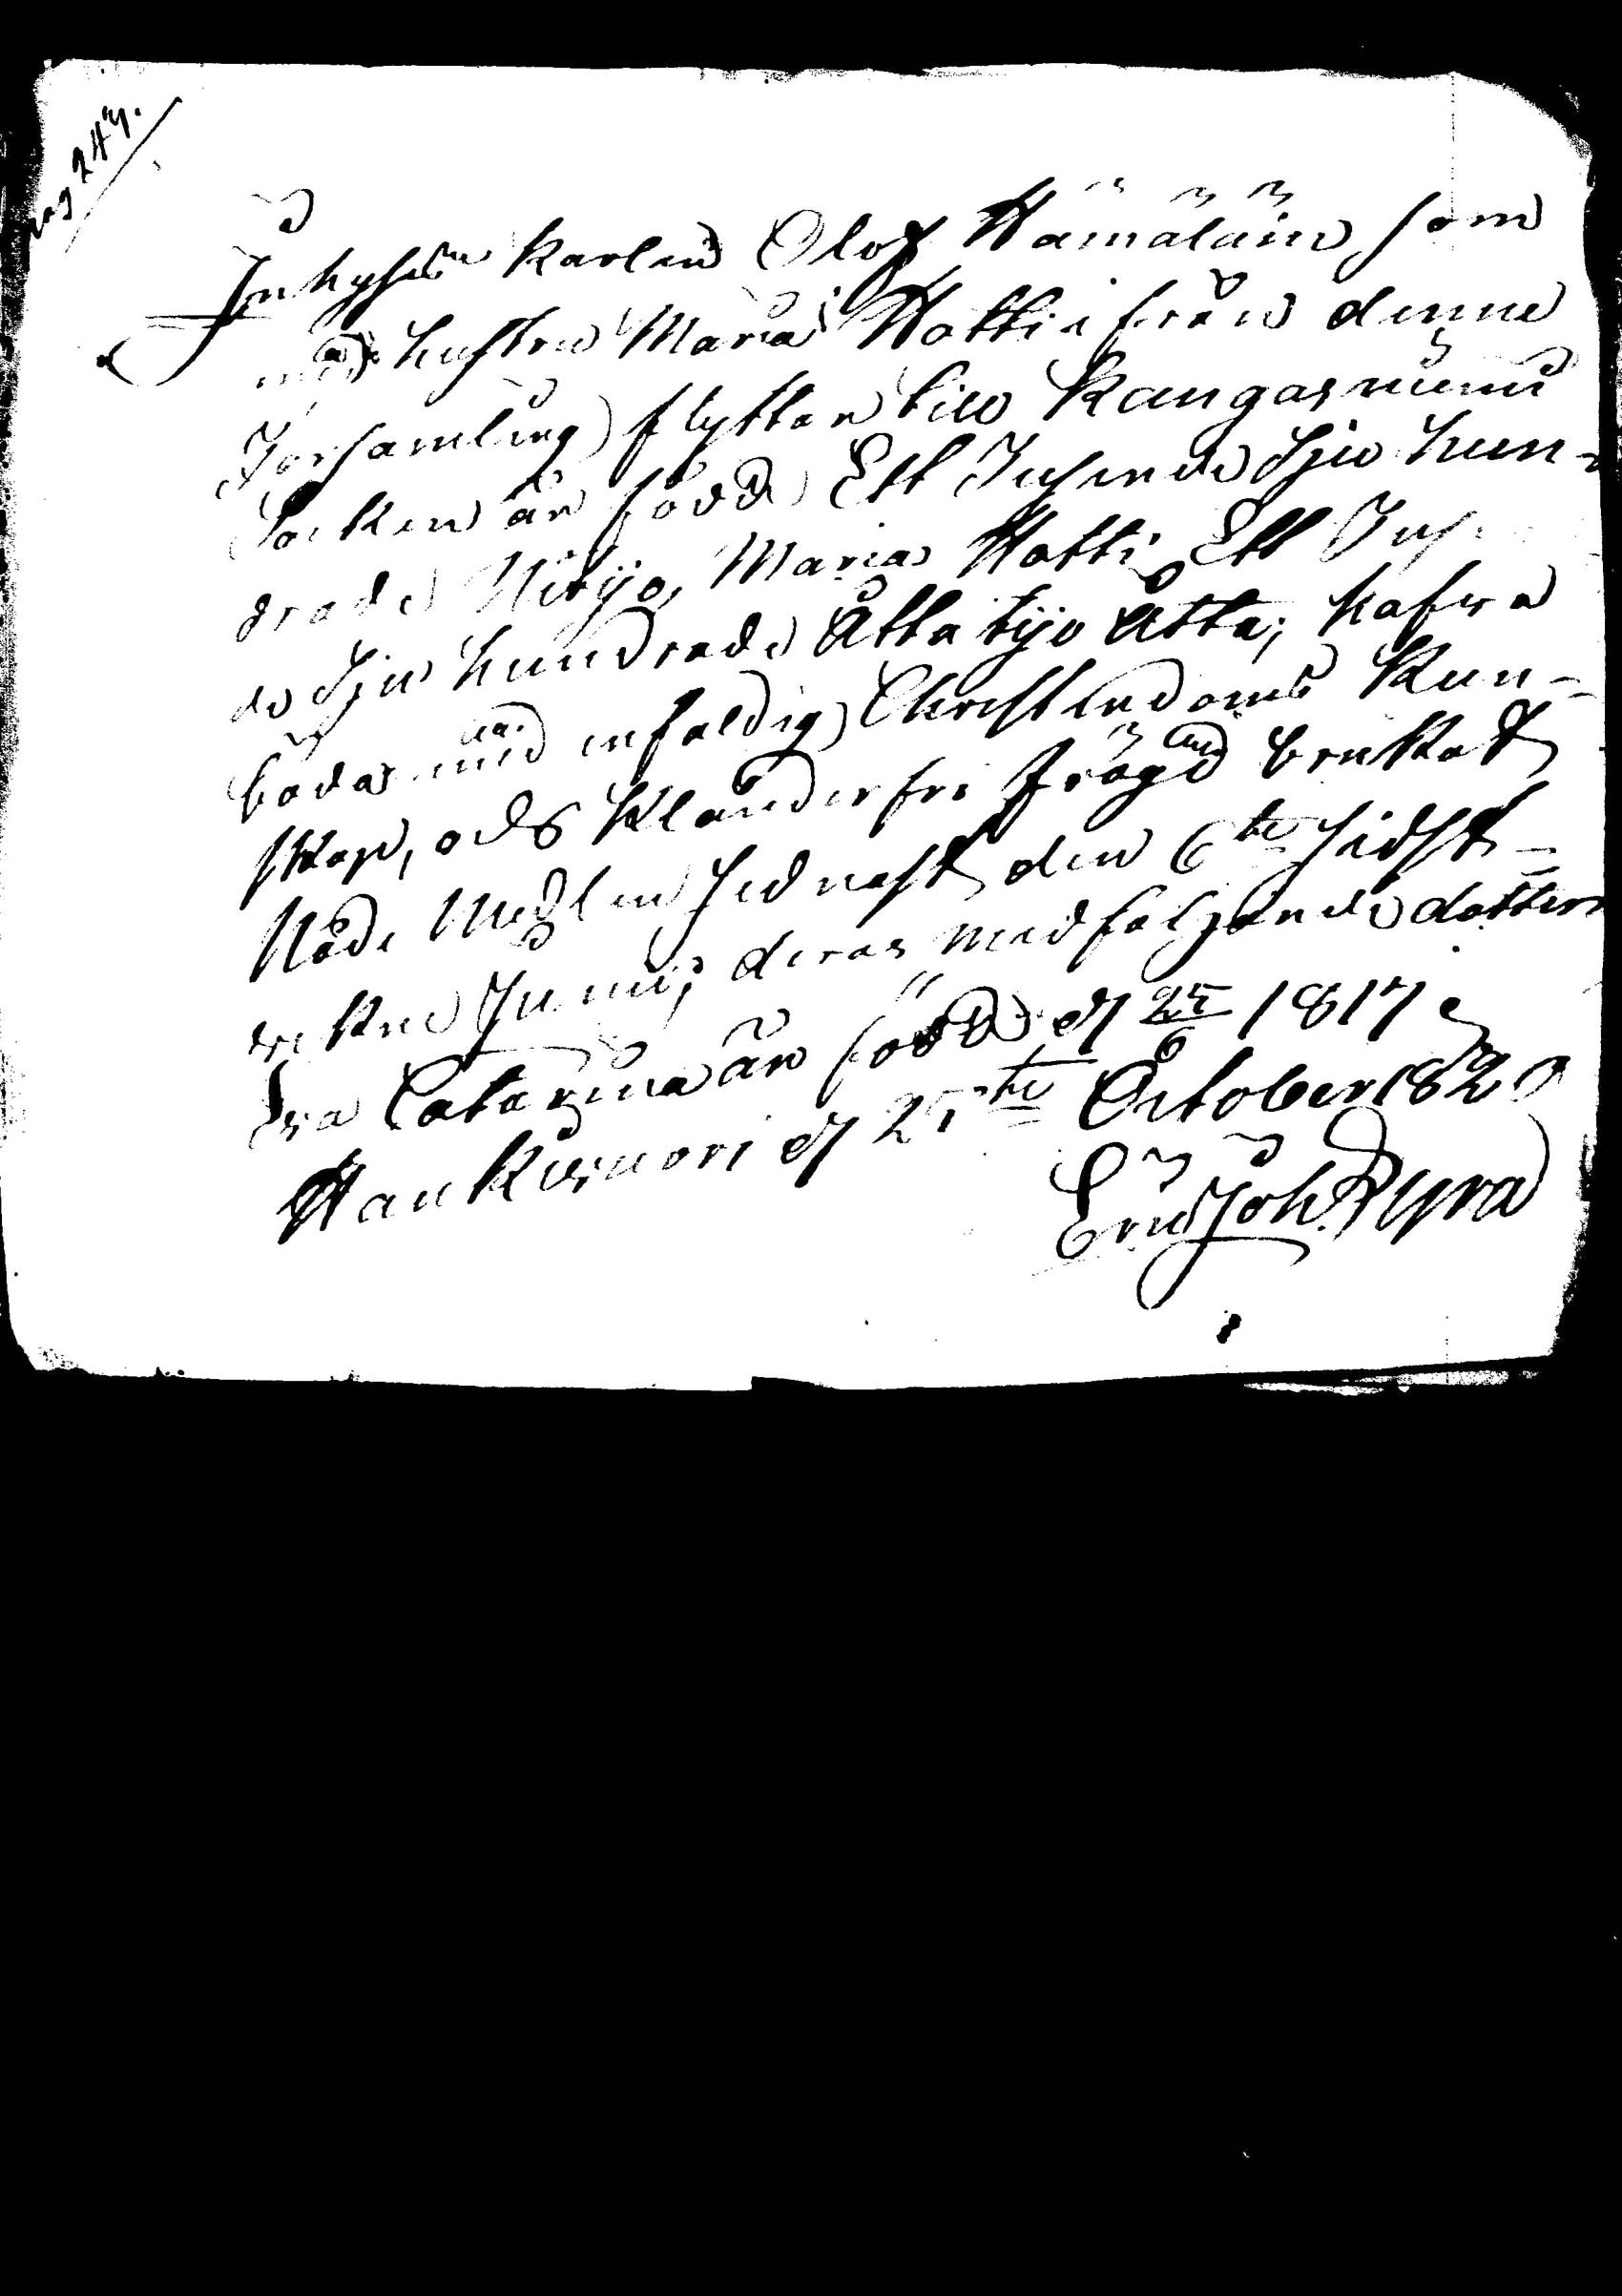 pag 247.
Inhyses Karlen Olof Hämäläin som
med hustru Maria Hotti ifrån denne
Församling flyttar till Kangasniemi
Socken är född Ett Tusende Sju hun-
drade Nitijo, Maria Hotti Ett Tusen
de Sju hundrade Åtta tijo Åtta; hafwa
båda med enfaldig Christendoms Kun-
skap, och Klanderfri frägd brukat
Nåde Medlen sednast den 6te sidst-
wekne Junii; deras medföljande dotter
Eva Catarina är född d 25/6 1817
Hankasari d 25te October 1820
Eric Joh. Pyra